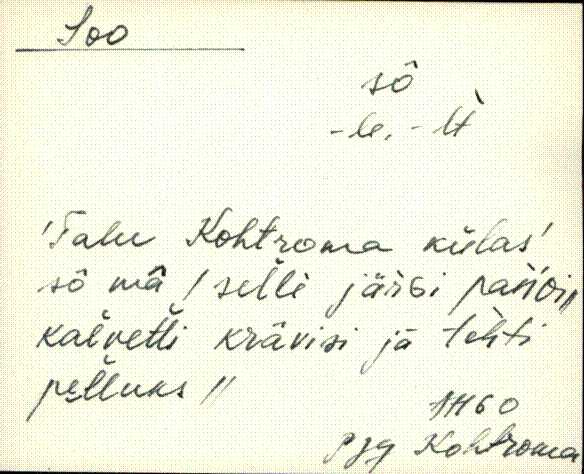 Soo
sô
-le, -lt
'Talu Kohtroma külas'
sô mâ / selli järsi
kaevetti krâvisi ja tehti
pelluks //
AH60
Pzg Kohtroma